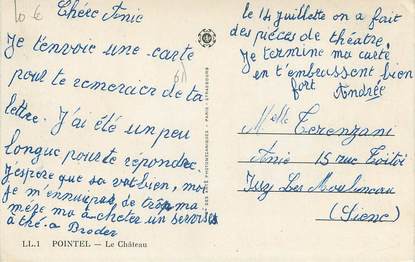 10 €
Chére Anie
Je t'envoie une carte
pour te remercier de ta
lettre. J'ai été un peu
longue pour te répondre,
j'espère que sa vat bien, moi
je m'ennui pas de trop ma
mère m'a acheter un services
a thé. a Broder
LL.1 POINTEL – Le Château
PARIS - STRASBOURG
le 14 juillette on a fait
des pièces de théatre.
Je termine ma carte
en t'embrassent bien
fort Andrée
Melle Terenzani
Anie 15 rue
Issy Les Moulineau
(Siene)